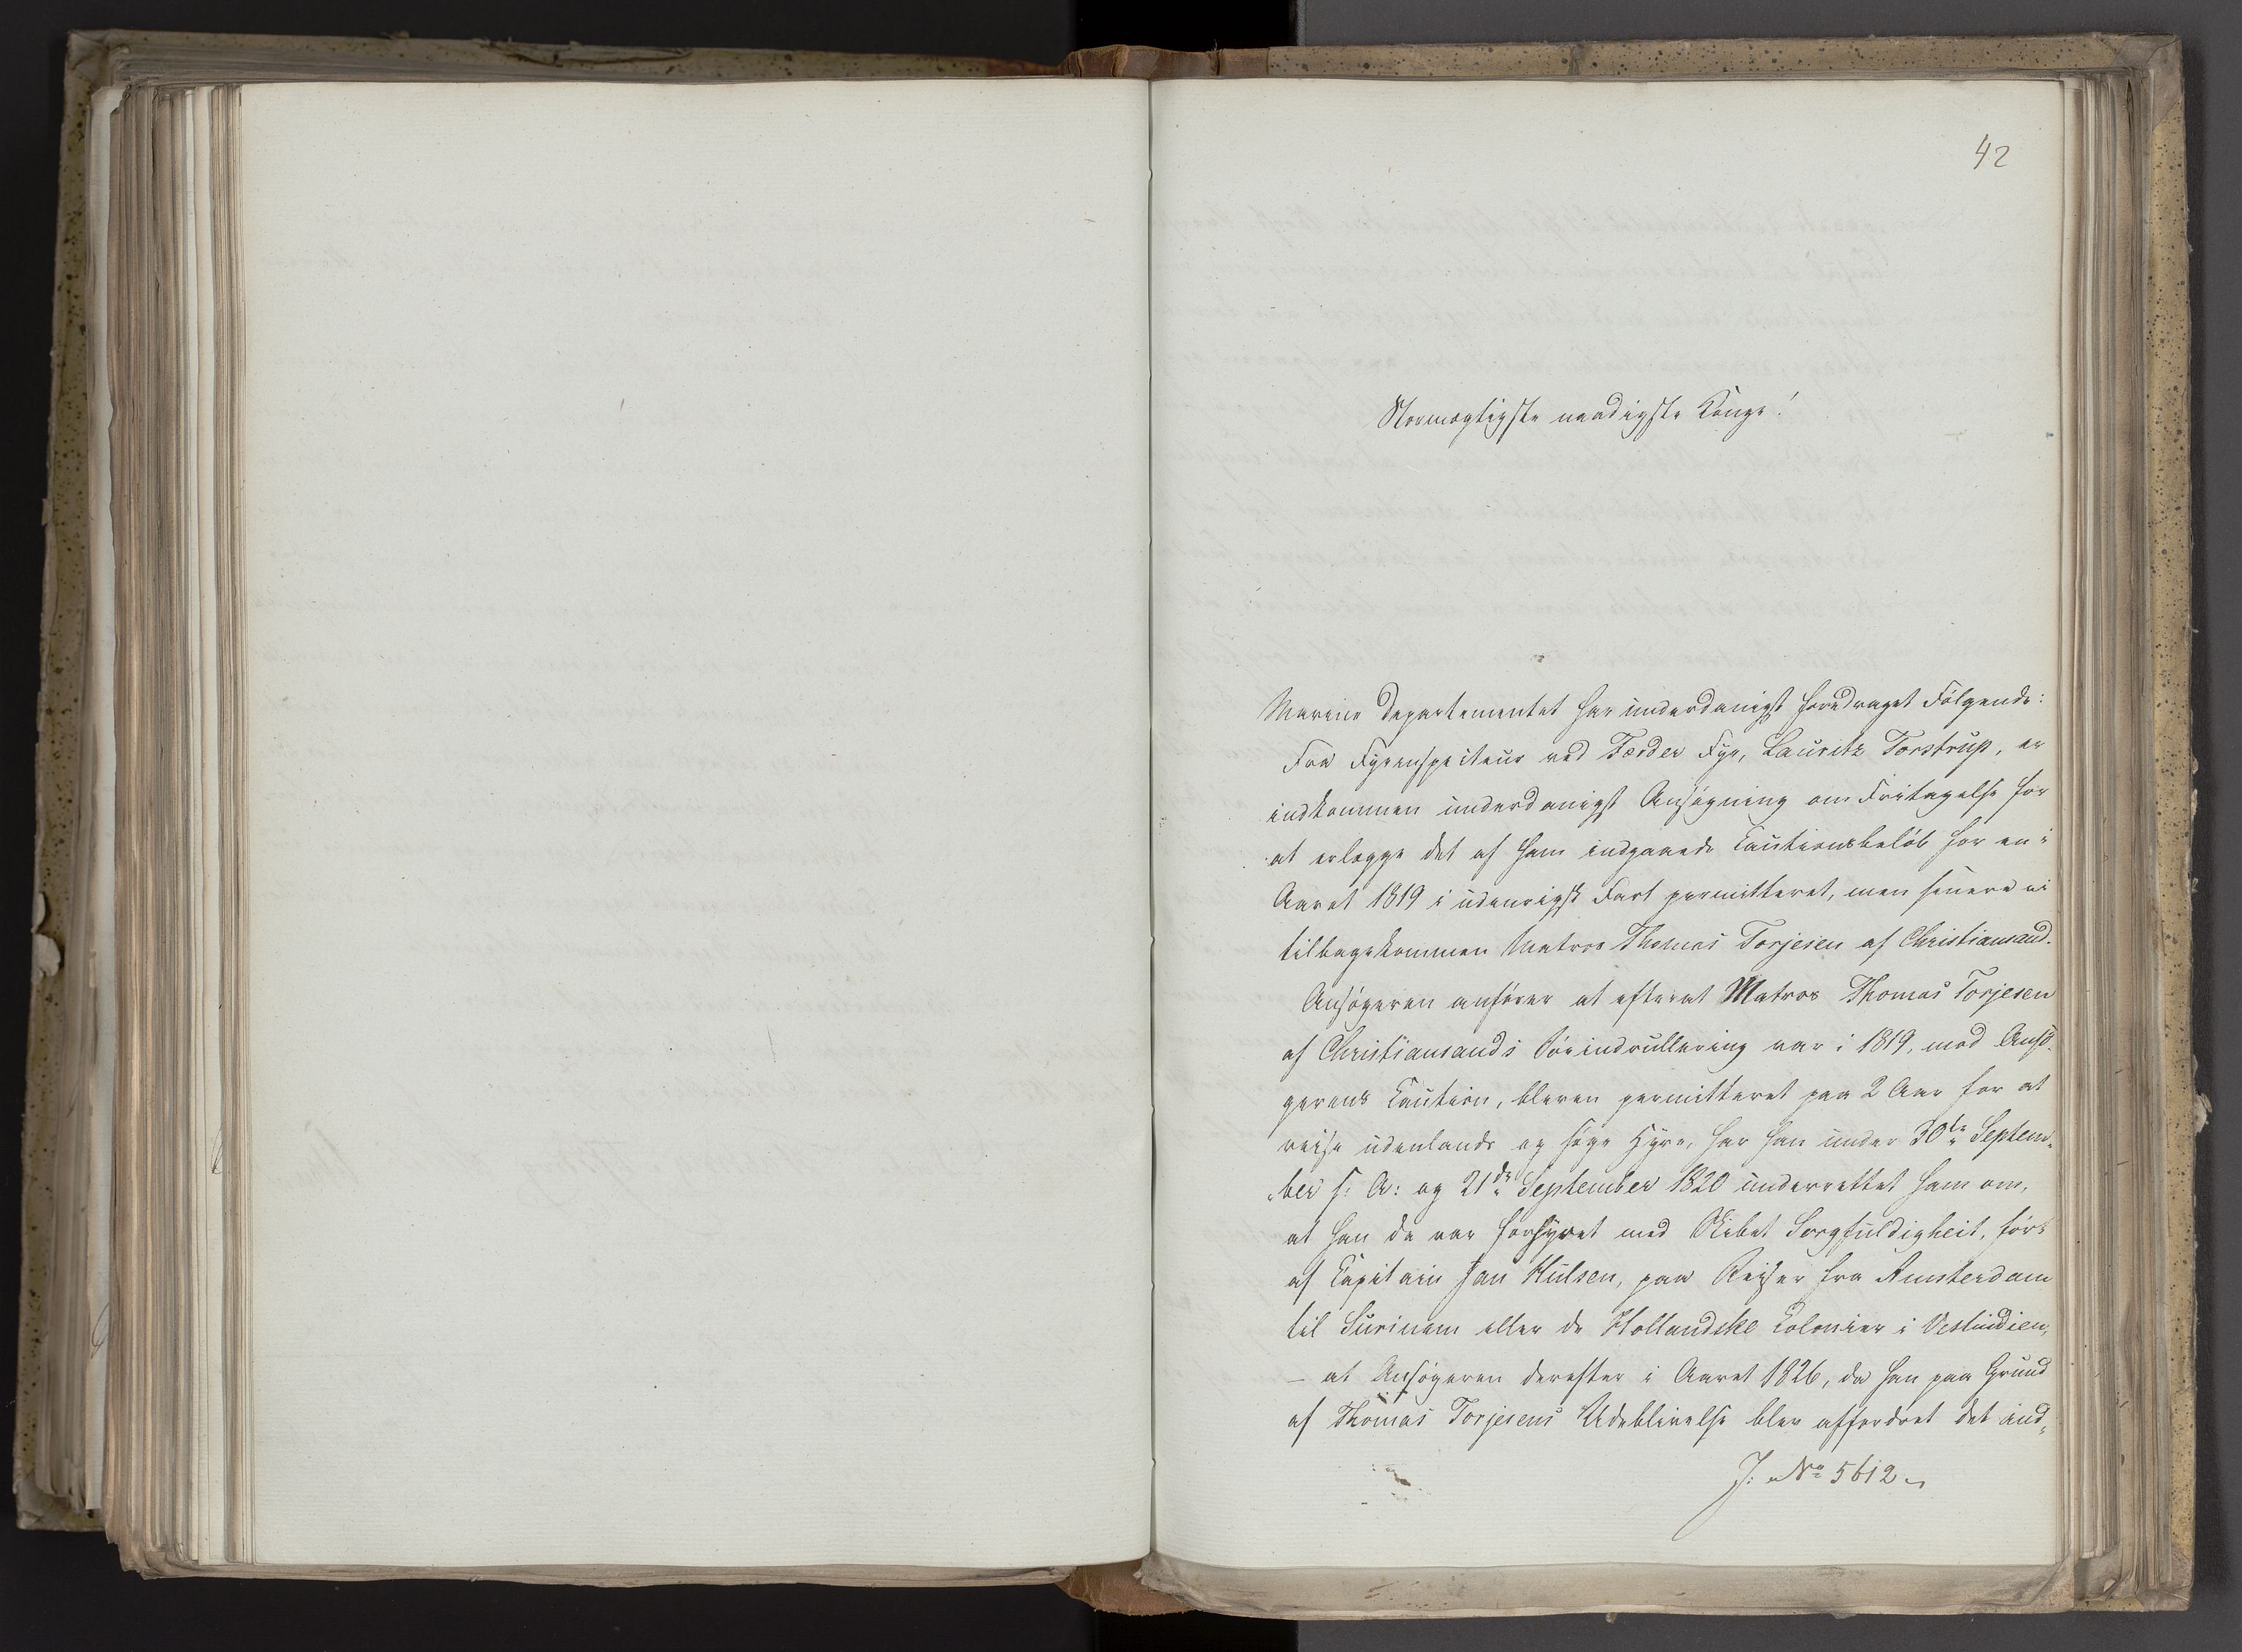 42
Stormægtigste naadigste Konge!
Marine Departementet har underdanigst foredraget Følgende:
Fra Fyrinspecteur ved Færder Fyr, Lauritz Torstrup, er
indkommen underdanigst Ansøgning om Fritagelse for
at erlægge det af ham indgaaede Cautionsbeløb for en i
Aaret 1819 i udenrigsk Fart permitteret, men senere ei
tilbagekommen Matros Thomas Torjesen af Christiansand.
Ansøgeren anfører at efterat Matros Thomas Torjesen
af Christiansands Søeindrullering var i 1819, med Ansø-
gerens Caution, bleven permitteret paa 2 Aar for at
reise udenlands og søge Hyre, har han under 30te Septem-
ber s: A: og 21de September 1820 underrettet ham om,
at han da var forhyret med Skibet Sorgfuldigheit, ført
af Capitain Jan Hülsen, paa Reiser fra Amsterdam
til Surinam eller de Hollandske Colonier i Vestindien,
– at Ansøgeren derefter i Aaret 1826, da han paa Grund
af Thomas Torjesens Udeblivelse blev affordret det ind-
J: No 5612